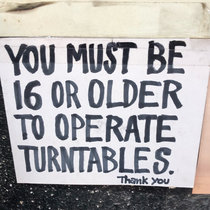 YOU MUST BE
16 OR OLDER
TO OPERATE
TURNTABLES.
Thank you